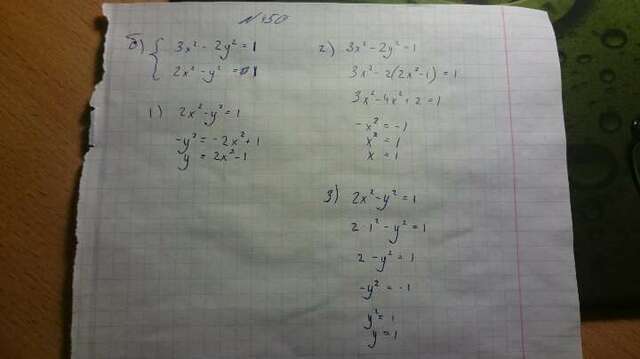 №450
б) { 3x² - 2y² = 1
2x² - y² = 1
1) 2x² - y² = 1
-y² = -2x² + 1
y = 2x² - 1
2) 3x² - 2y² - 1
3x² - 2(2x² - 1) = 1
3x² - 4x² + 2 = 1
-x² = -1
x² = 1
x = 1
3) 2x² - y² = 1
2·1² - y² = 1
2 - y² = 1
-y² = -1
y² = 1
y = 1